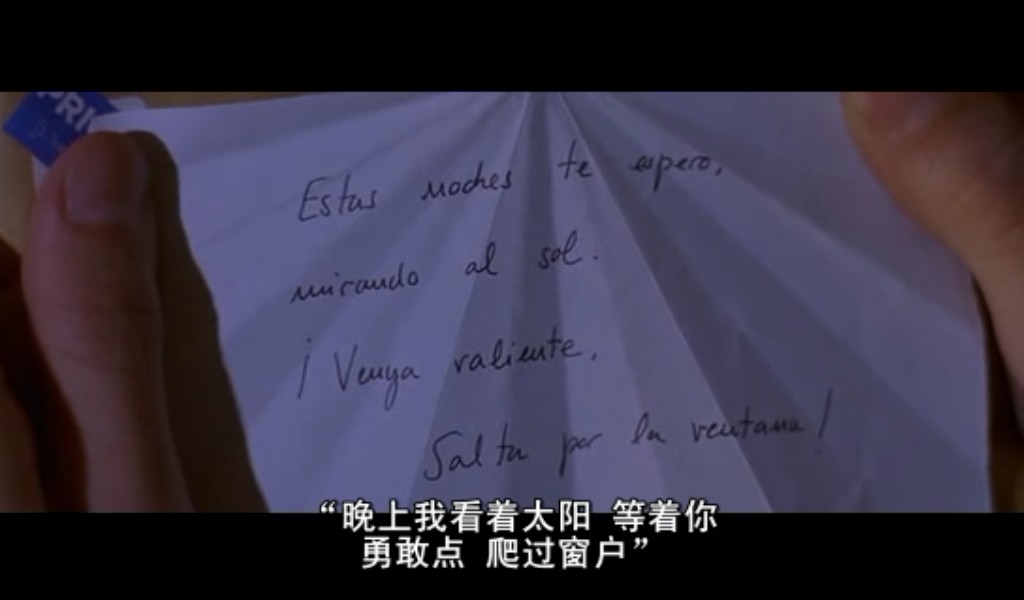 PRI
Estas noches te espero,
mirando al sol.
¡Venga valiente,
Salta por la ventana!
“晚上我看着太阳 等着你
勇敢点 爬过窗户”